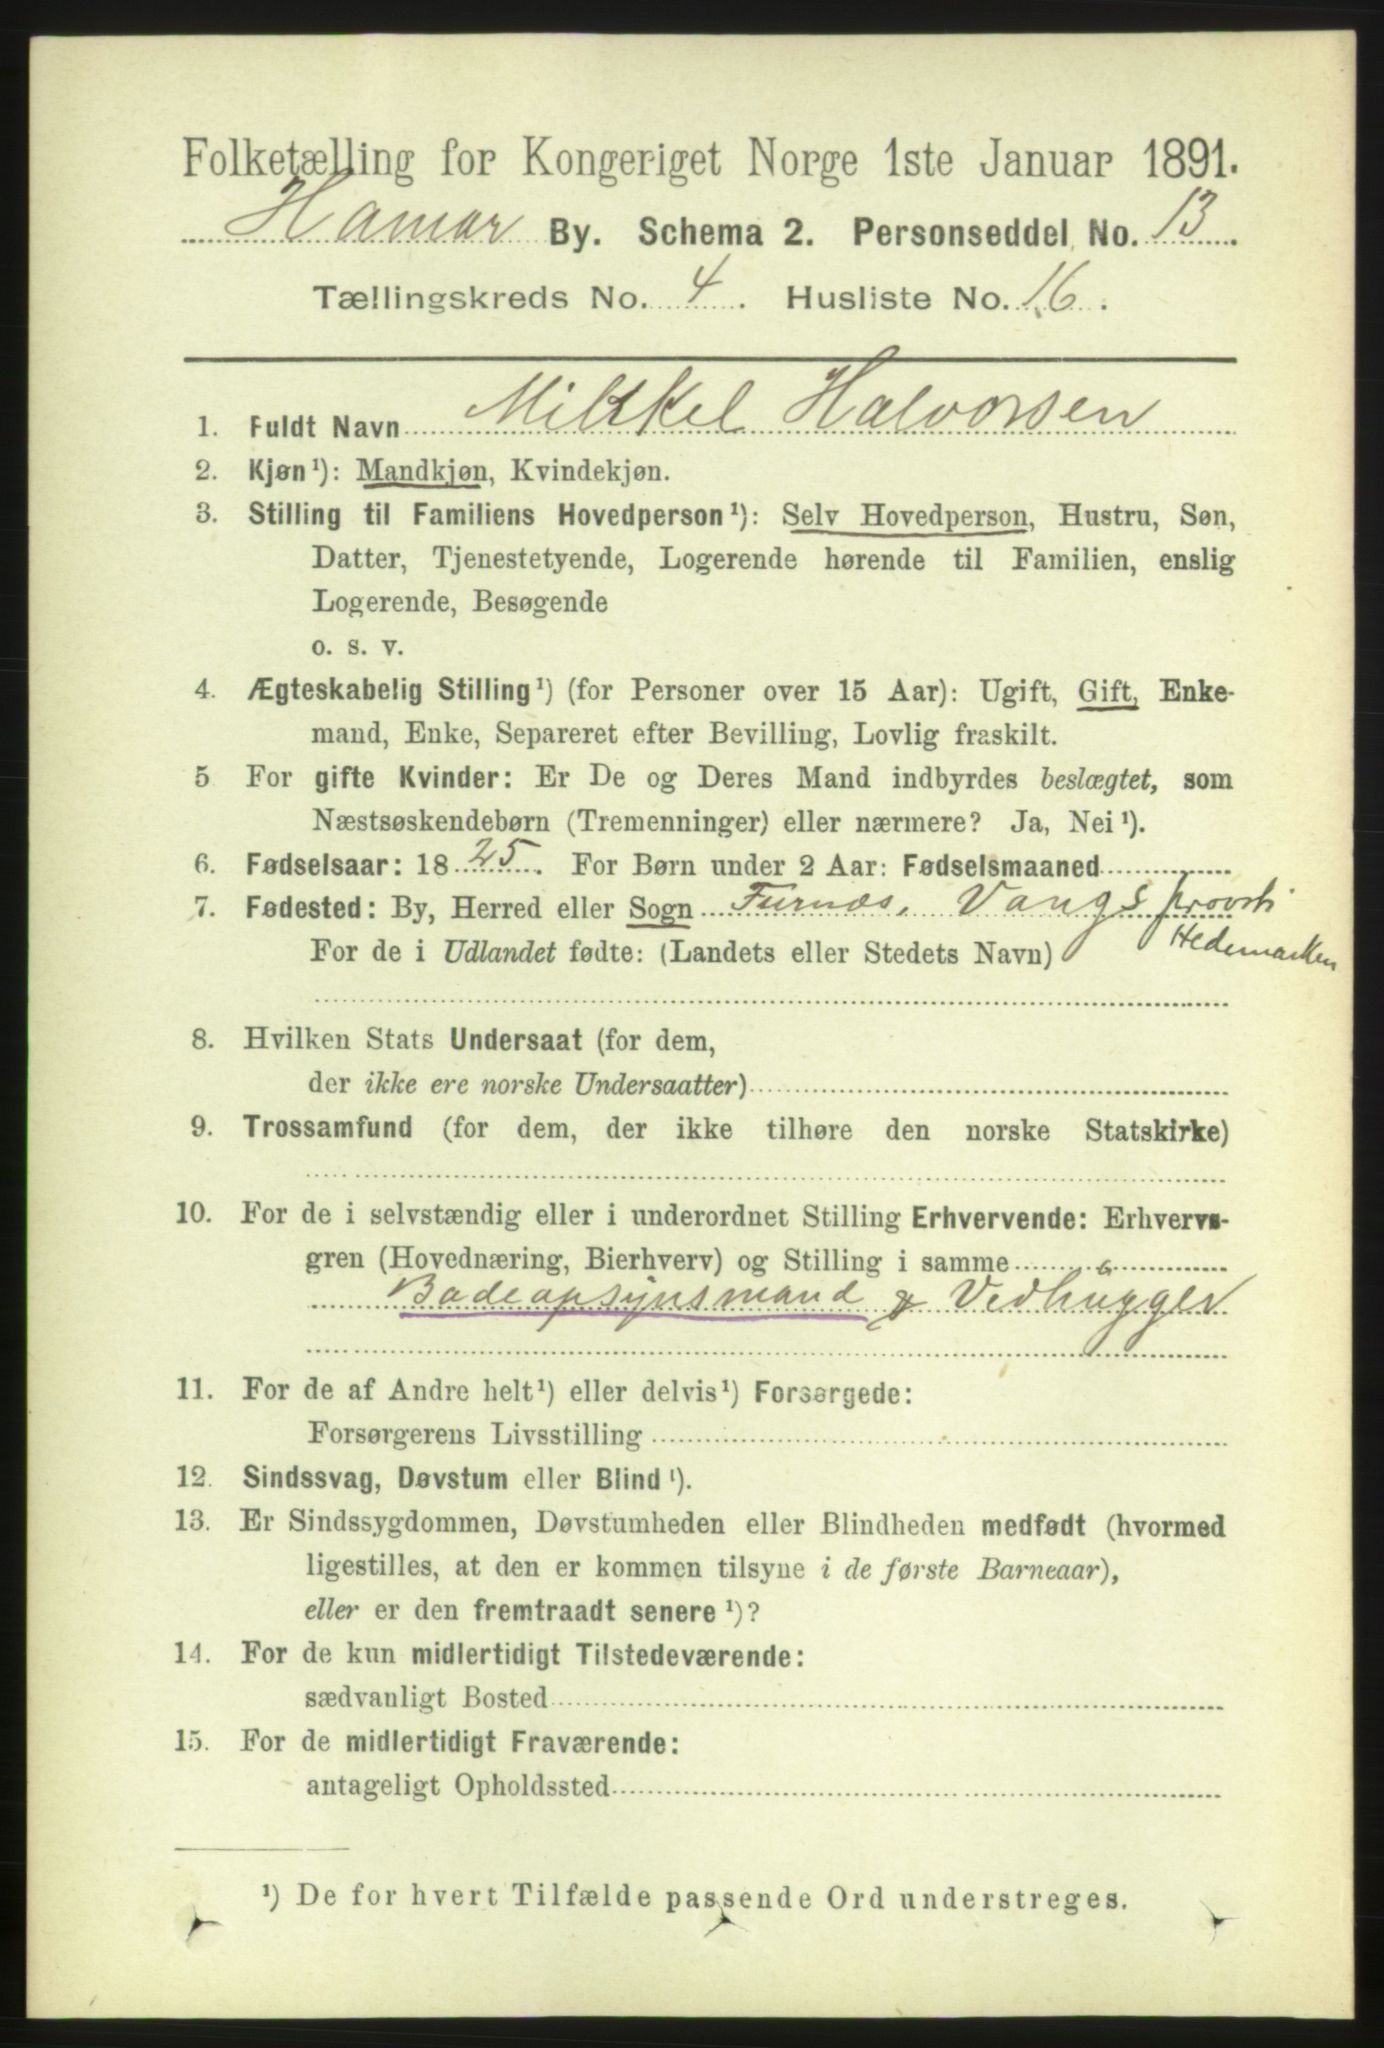 Folketælling for Kongeriget Norge 1ste Januar 1891.
Hamar By. Schema 2. Personseddel No. 13.
Tællingskreds No. 4. Husliste No. 16.
1. Fuldt Navn Mikkel Halvorsen
2. Kjøn¹): Mandkjøn, Kvindekjøn.
3. Stilling til Familiens Hovedperson¹): Selv Hovedperson, Hustru, Søn,
Datter, Tjenestetyende, Logerende hørende til Familien, enslig
Logerende, Besøgende
o. s. v.
4. Ægteskabelig Stilling¹) (for Personer over 15 Aar): Ugift, Gift, Enke-
mand, Enke, Separeret efter Bevilling, Lovlig fraskilt.
5 For gifte Kvinder: Er De og Deres Mand indbyrdes beslægtet, som
Næstsøskendebørn (Tremenninger) eller nærmere? Ja, Nei¹).
6. Fødselsaar: 1825. For Børn under 2 Aar: Fødselsmaaned
7. Fødested: By, Herred eller Sogn Furnæs, Vangs provsti
Hedemarken
For de i Udlandet fødte: (Landets eller Stedets Navn)
8. Hvilken Stats Undersaat (for dem,
der ikke ere norske Undersaatter)
9. Trossamfund (for dem, der ikke tilhøre den norske Statskirke)
10. For de i selvstændig eller i underordnet Stilling Erhvervende: Erhvervs-
gren (Hovednæring, Bierhverv) og Stilling i samme
Badeopsynsmand & Vedhugger
11. For de af Andre helt¹) eller delvis¹) Forsørgede:
Forsørgerens Livsstilling
12. Sindssvag, Døvstum eller Blind¹).
13. Er Sindssygdommen, Døvstumheden eller Blindheden medfødt (hvormed
ligestilles, at den er kommen tilsyne i de første Barneaar),
eller er den fremtraadt senere¹)?
14. For de kun midlertidigt Tilstedeværende:
sædvanligt Bosted
15. For de midlertidigt Fraværende:
antageligt Opholdssted
¹) De for hvert Tilfælde passende Ord understreges.